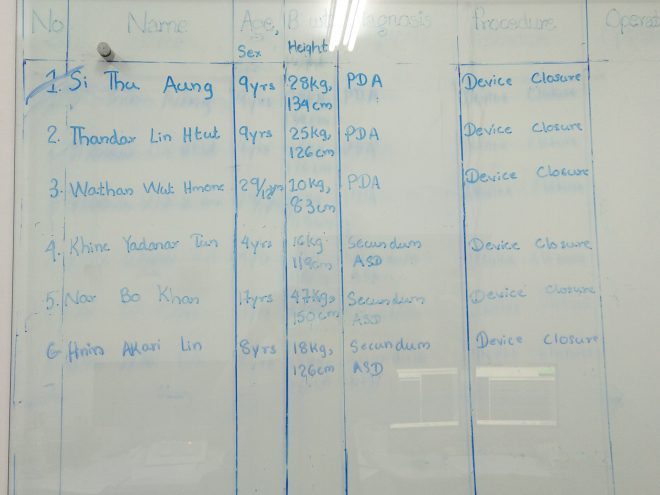 No Name Age, Diagnosis Procedure
Sex Height
1. Si Thu Aung 9yrs 28kg, PDA Device Closure
134cm
2. Thandar Lin Htut 9yrs 25kg, PDA Device Closure
126cm
3. Wathan Wut Hmone 2 9/12yrs 10kg, PDA Device Closure
83cm
4. Khine Yadanar Tun 4yrs 16kg Secundum Device Closure
119cm ASD
5. Nar Bo Khan 17yrs 47kg, Secundum Device Closure
150cm ASD
6 Hnin Akari Lin 8yrs 18kg, Secundum Device Closure
126cm ASD